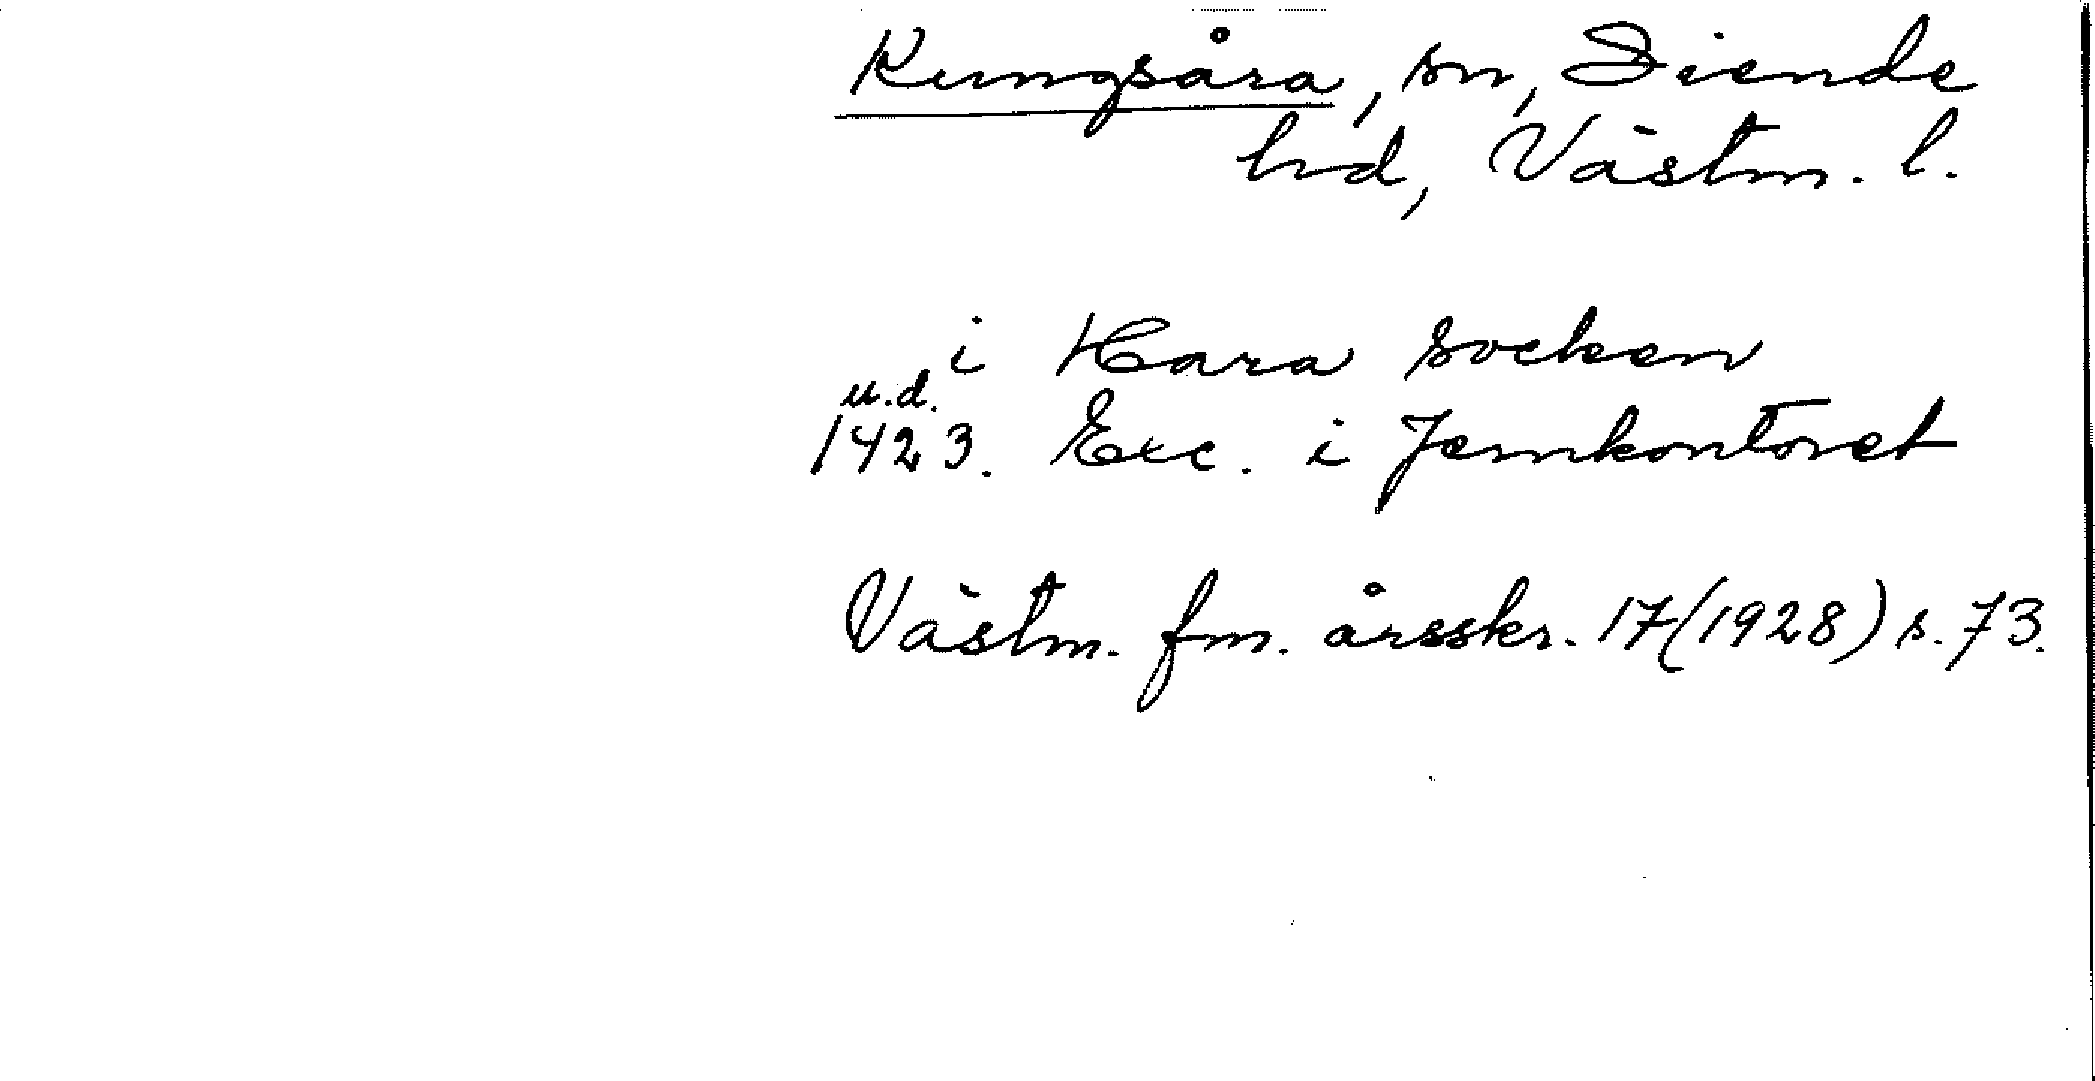 Kungsåra, sn, Siende
hd, Västm. l.
i Hara socken
u.d.
1423. Exc. i Jernkontoret
Västm. fm. årsskr. 17 (1928) s. 73.